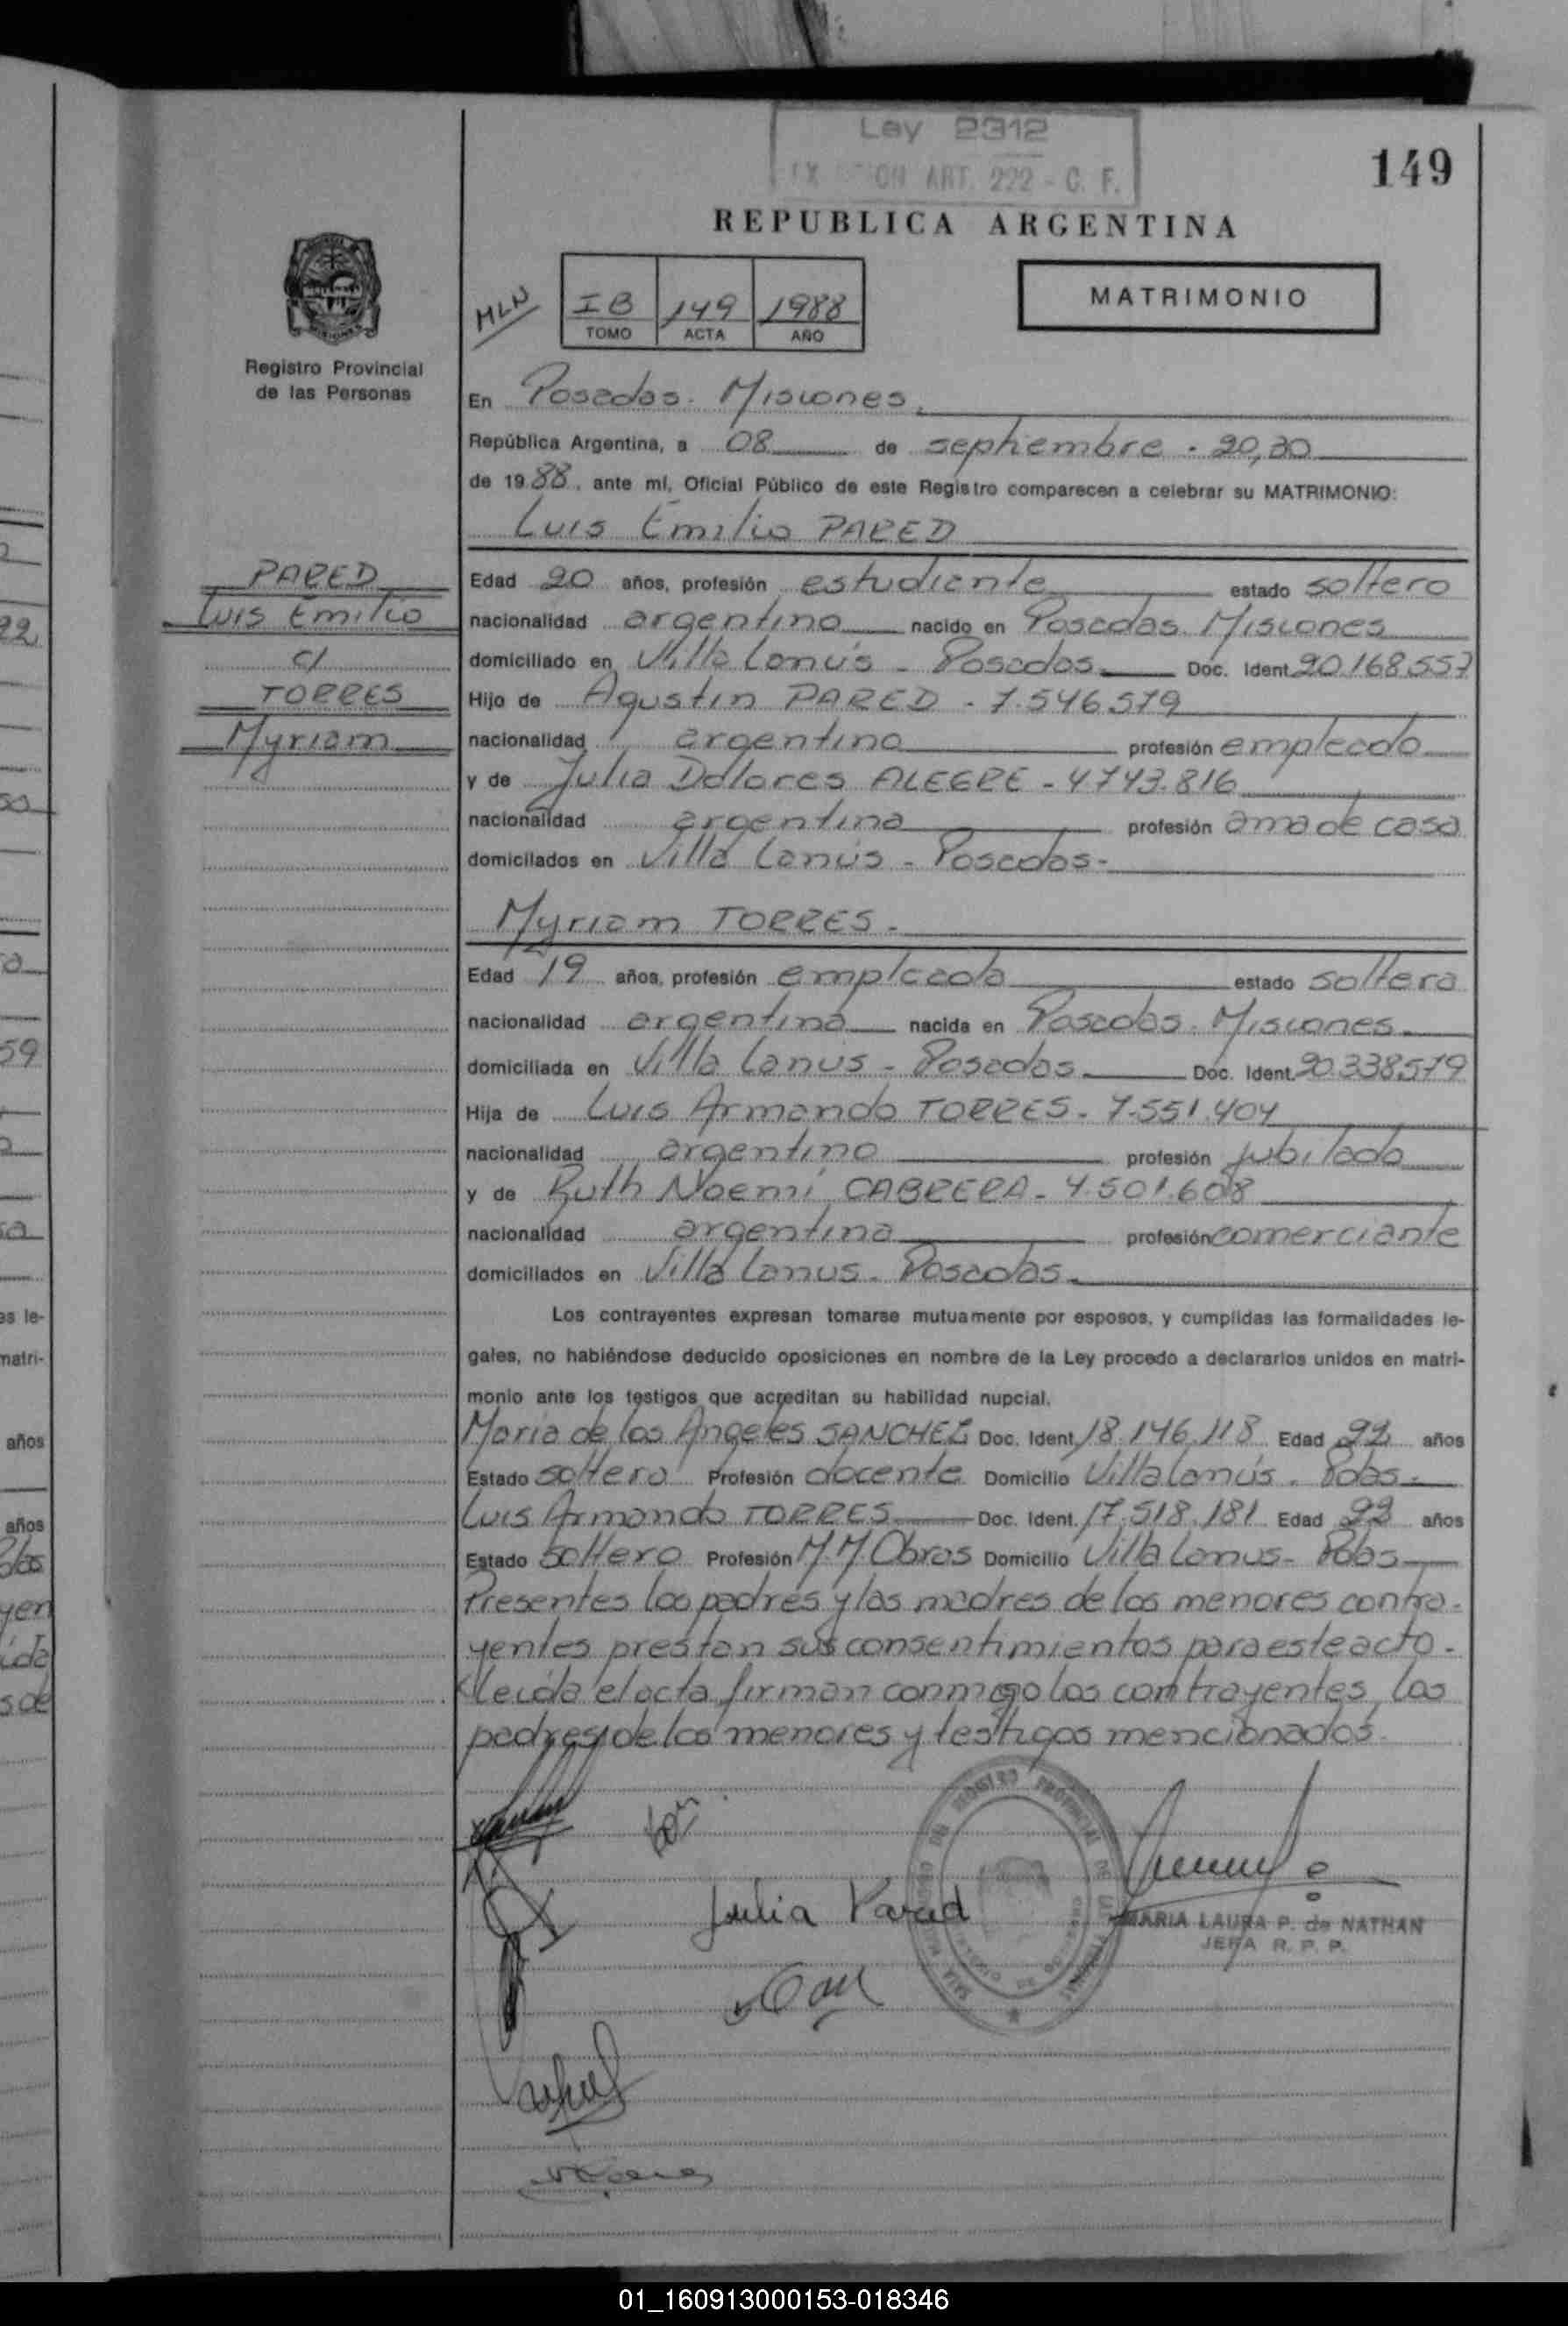 Ley 2312
ON ART. 222 - C. F.
149
REPUBLICA ARGENTINA
MATRIMONIO
MLN
IB 149 1988
TOMO ACTA AÑO
Registro Provincial
de las Personas
En Posadas - Misiones
República Argentina, a 08 de septiembre - 20,30
de 1988, ante mí, Oficial Público de este Registro comparecen a celebrar su MATRIMONIO:
Luis Emilio PARED
PARED
Luis Emilio
c/
TORRES
Myriam
Edad 20 años, profesión estudiante estado soltero
nacionalidad argentino nacido en Posadas Misiones
domiciliado en Villa Lanús - Posadas Doc. Ident. 20.168.557
Hijo de Agustín PARED - 7.546.579
nacionalidad argentino profesión empleado
y de Julia Dolores ALEGRE - 4743.816
nacionalidad argentina profesión ama de casa
domicilados en Villa Lanús - Posadas -
Myriam TORRES -
Edad 19 años, profesión empleada estado soltera
nacionalidad argentina nacida en Posadas - Misiones
domiciliada en Villa Lanus - Posadas Doc. Ident. 20.338.579
Hija de Luis Armando TORRES - 7.551.404
nacionalidad argentino profesión jubilado
y de Ruth Noemí CABRERA - 4.501.608
nacionalidad argentina profesión comerciante
domiciliados en Villa Lanus - Posadas -
Los contrayentes expresan tomarse mutuamente por esposos, y cumplidas las formalidades le-
gales, no habiéndose deducido oposiciones en nombre de la Ley procedo a declararlos unidos en matri-
monio ante los testigos que acreditan su habilidad nupcial.
María de los Angeles SANCHEZ Doc. Ident. 18.146.118 Edad 22 años
Estado soltera Profesión docente Domicilio Villa Lanús - Pdas -
Luis Armando TORRES Doc. Ident. 17.518.181 Edad 23 años
Estado Soltero Profesión M.M.Obras Domicilio Villa Lanus - Pdas
Presentes los padres y las madres de los menores contra-
yentes prestan sus consentimientos para este acto -
Leída el acta firman conmigo los contrayentes, los
padres de los menores y testigos mencionados.
Julia Pared
MARIA LAURA P. de NATHAN
JEFA R. P. P.
01_160913000153-018346